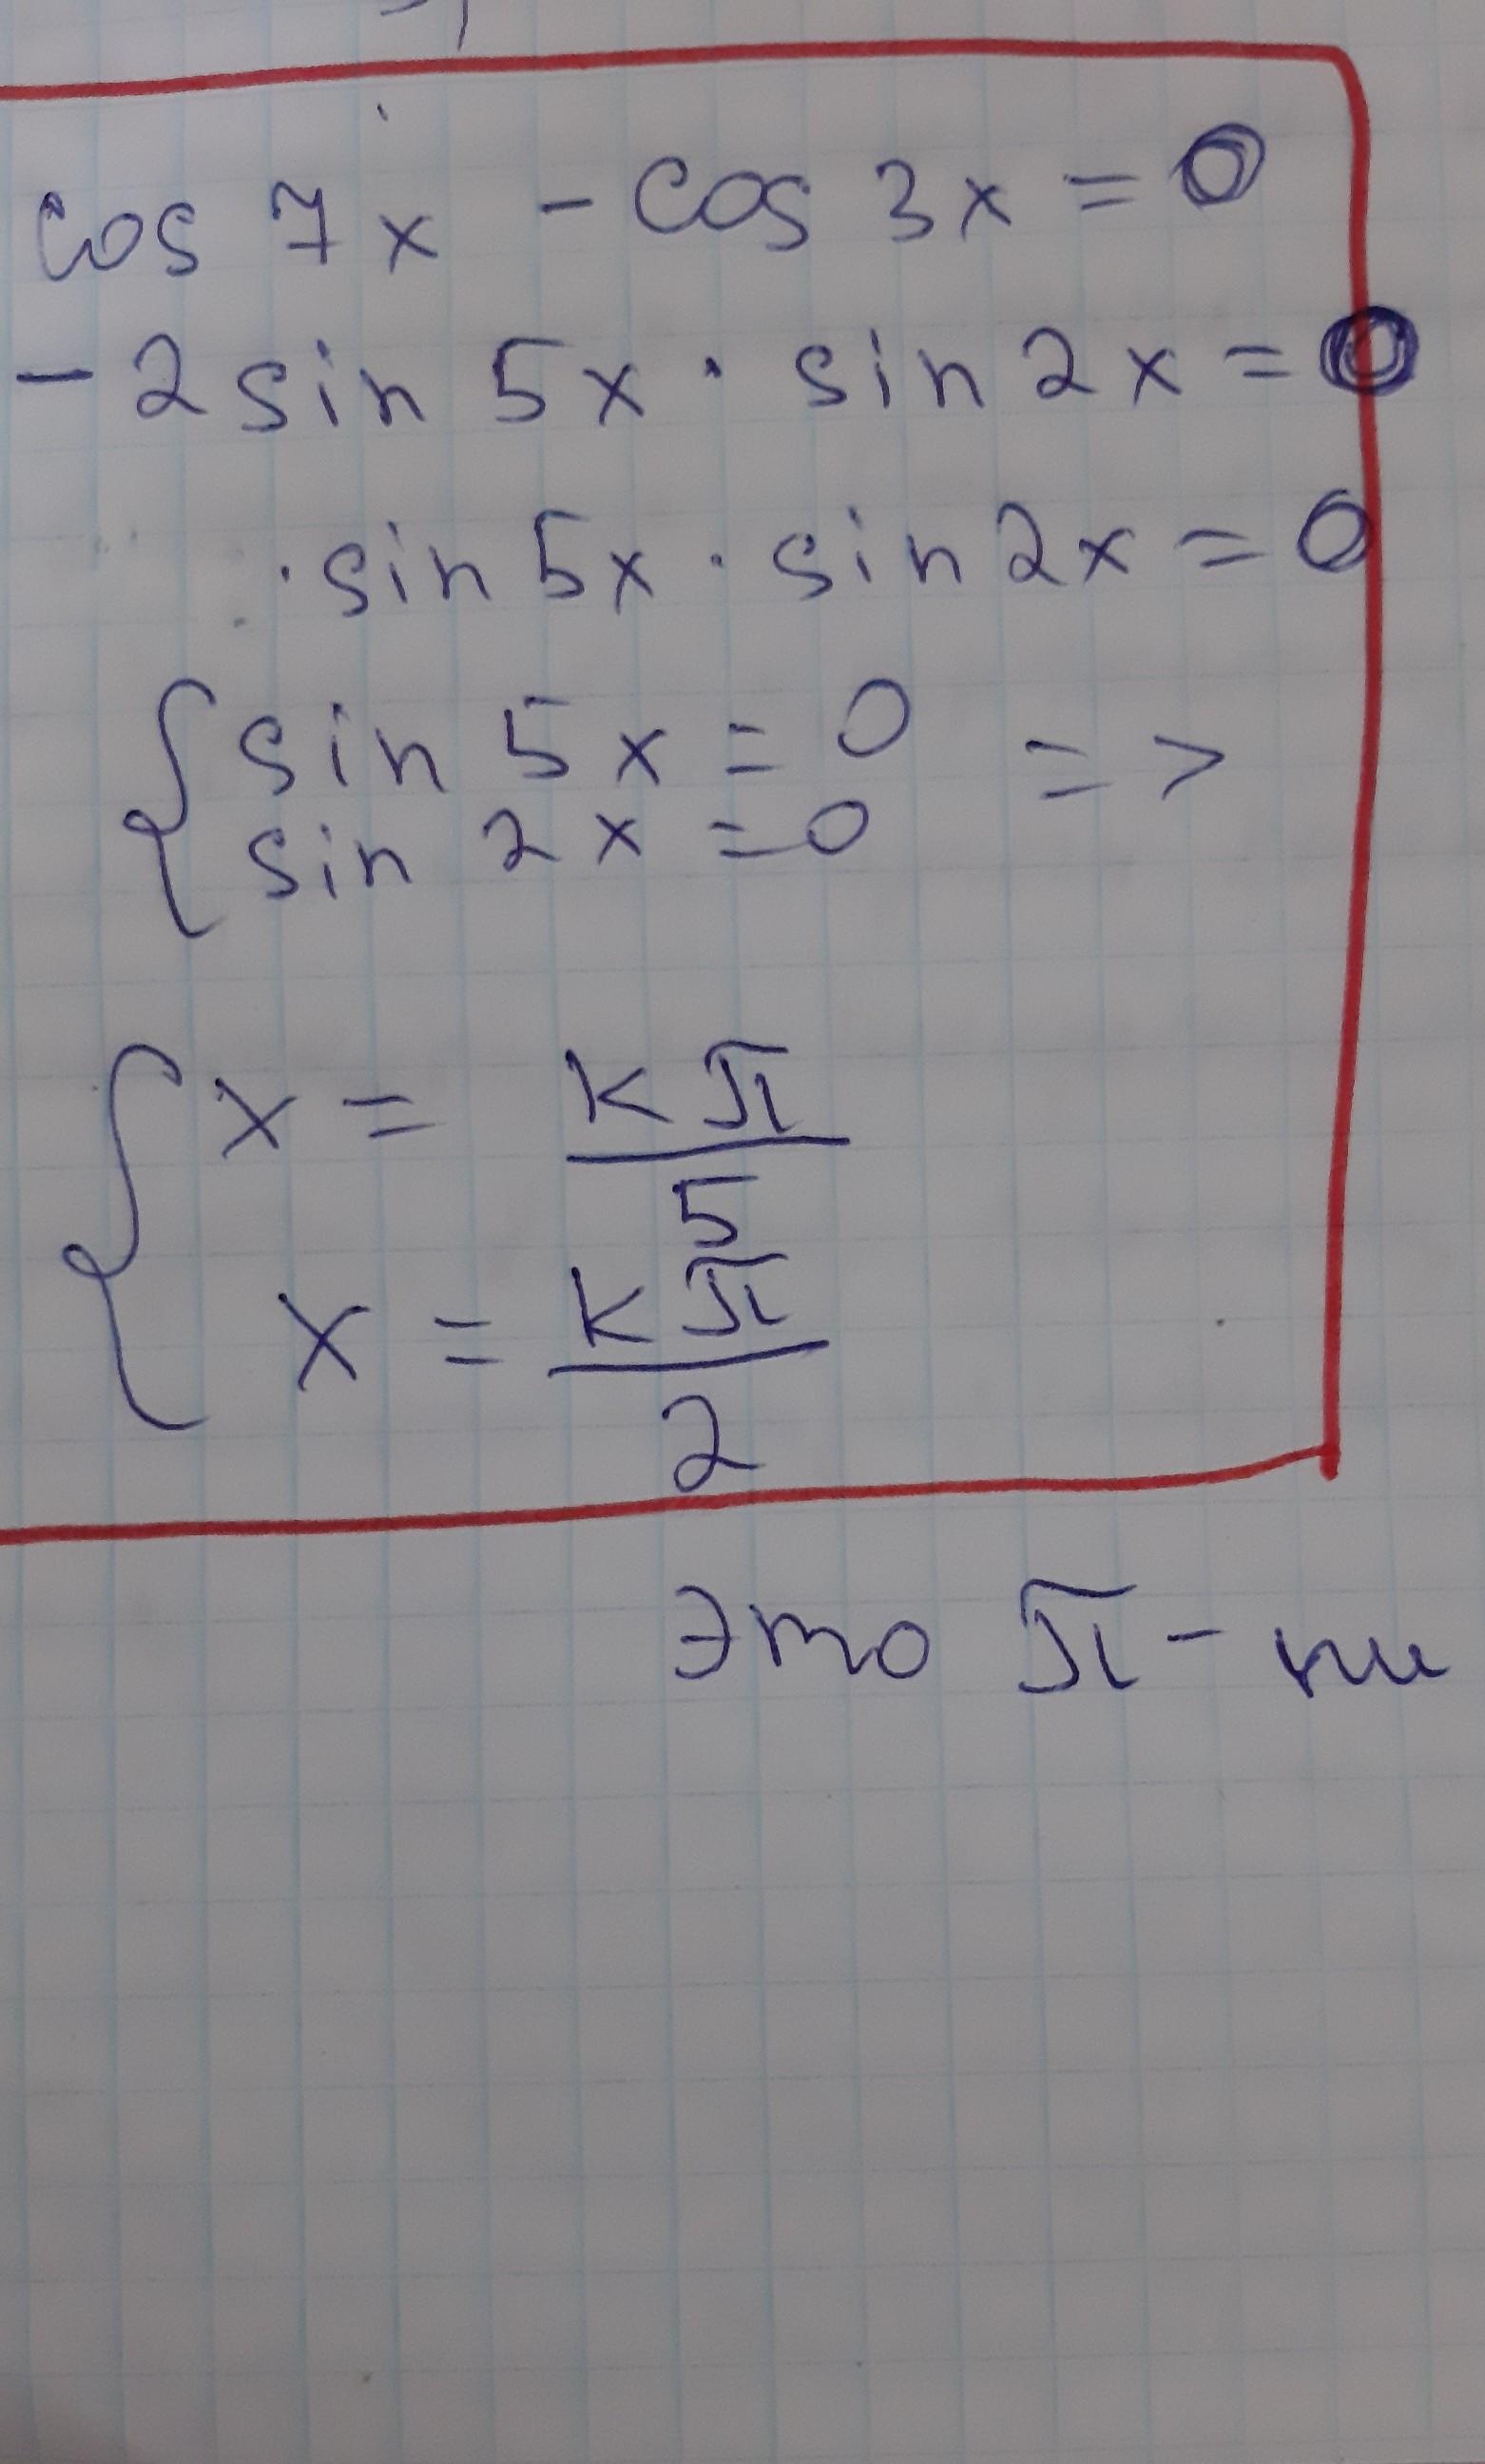 cos 7x - cos 3x = 0
-2 sin 5x · sin 2x = 0
· sin 5x · sin 2x = 0
{ sin 5x = 0 =>
sin 2x = 0
{ x = kπ/5
x = kπ/2
Это π - пи